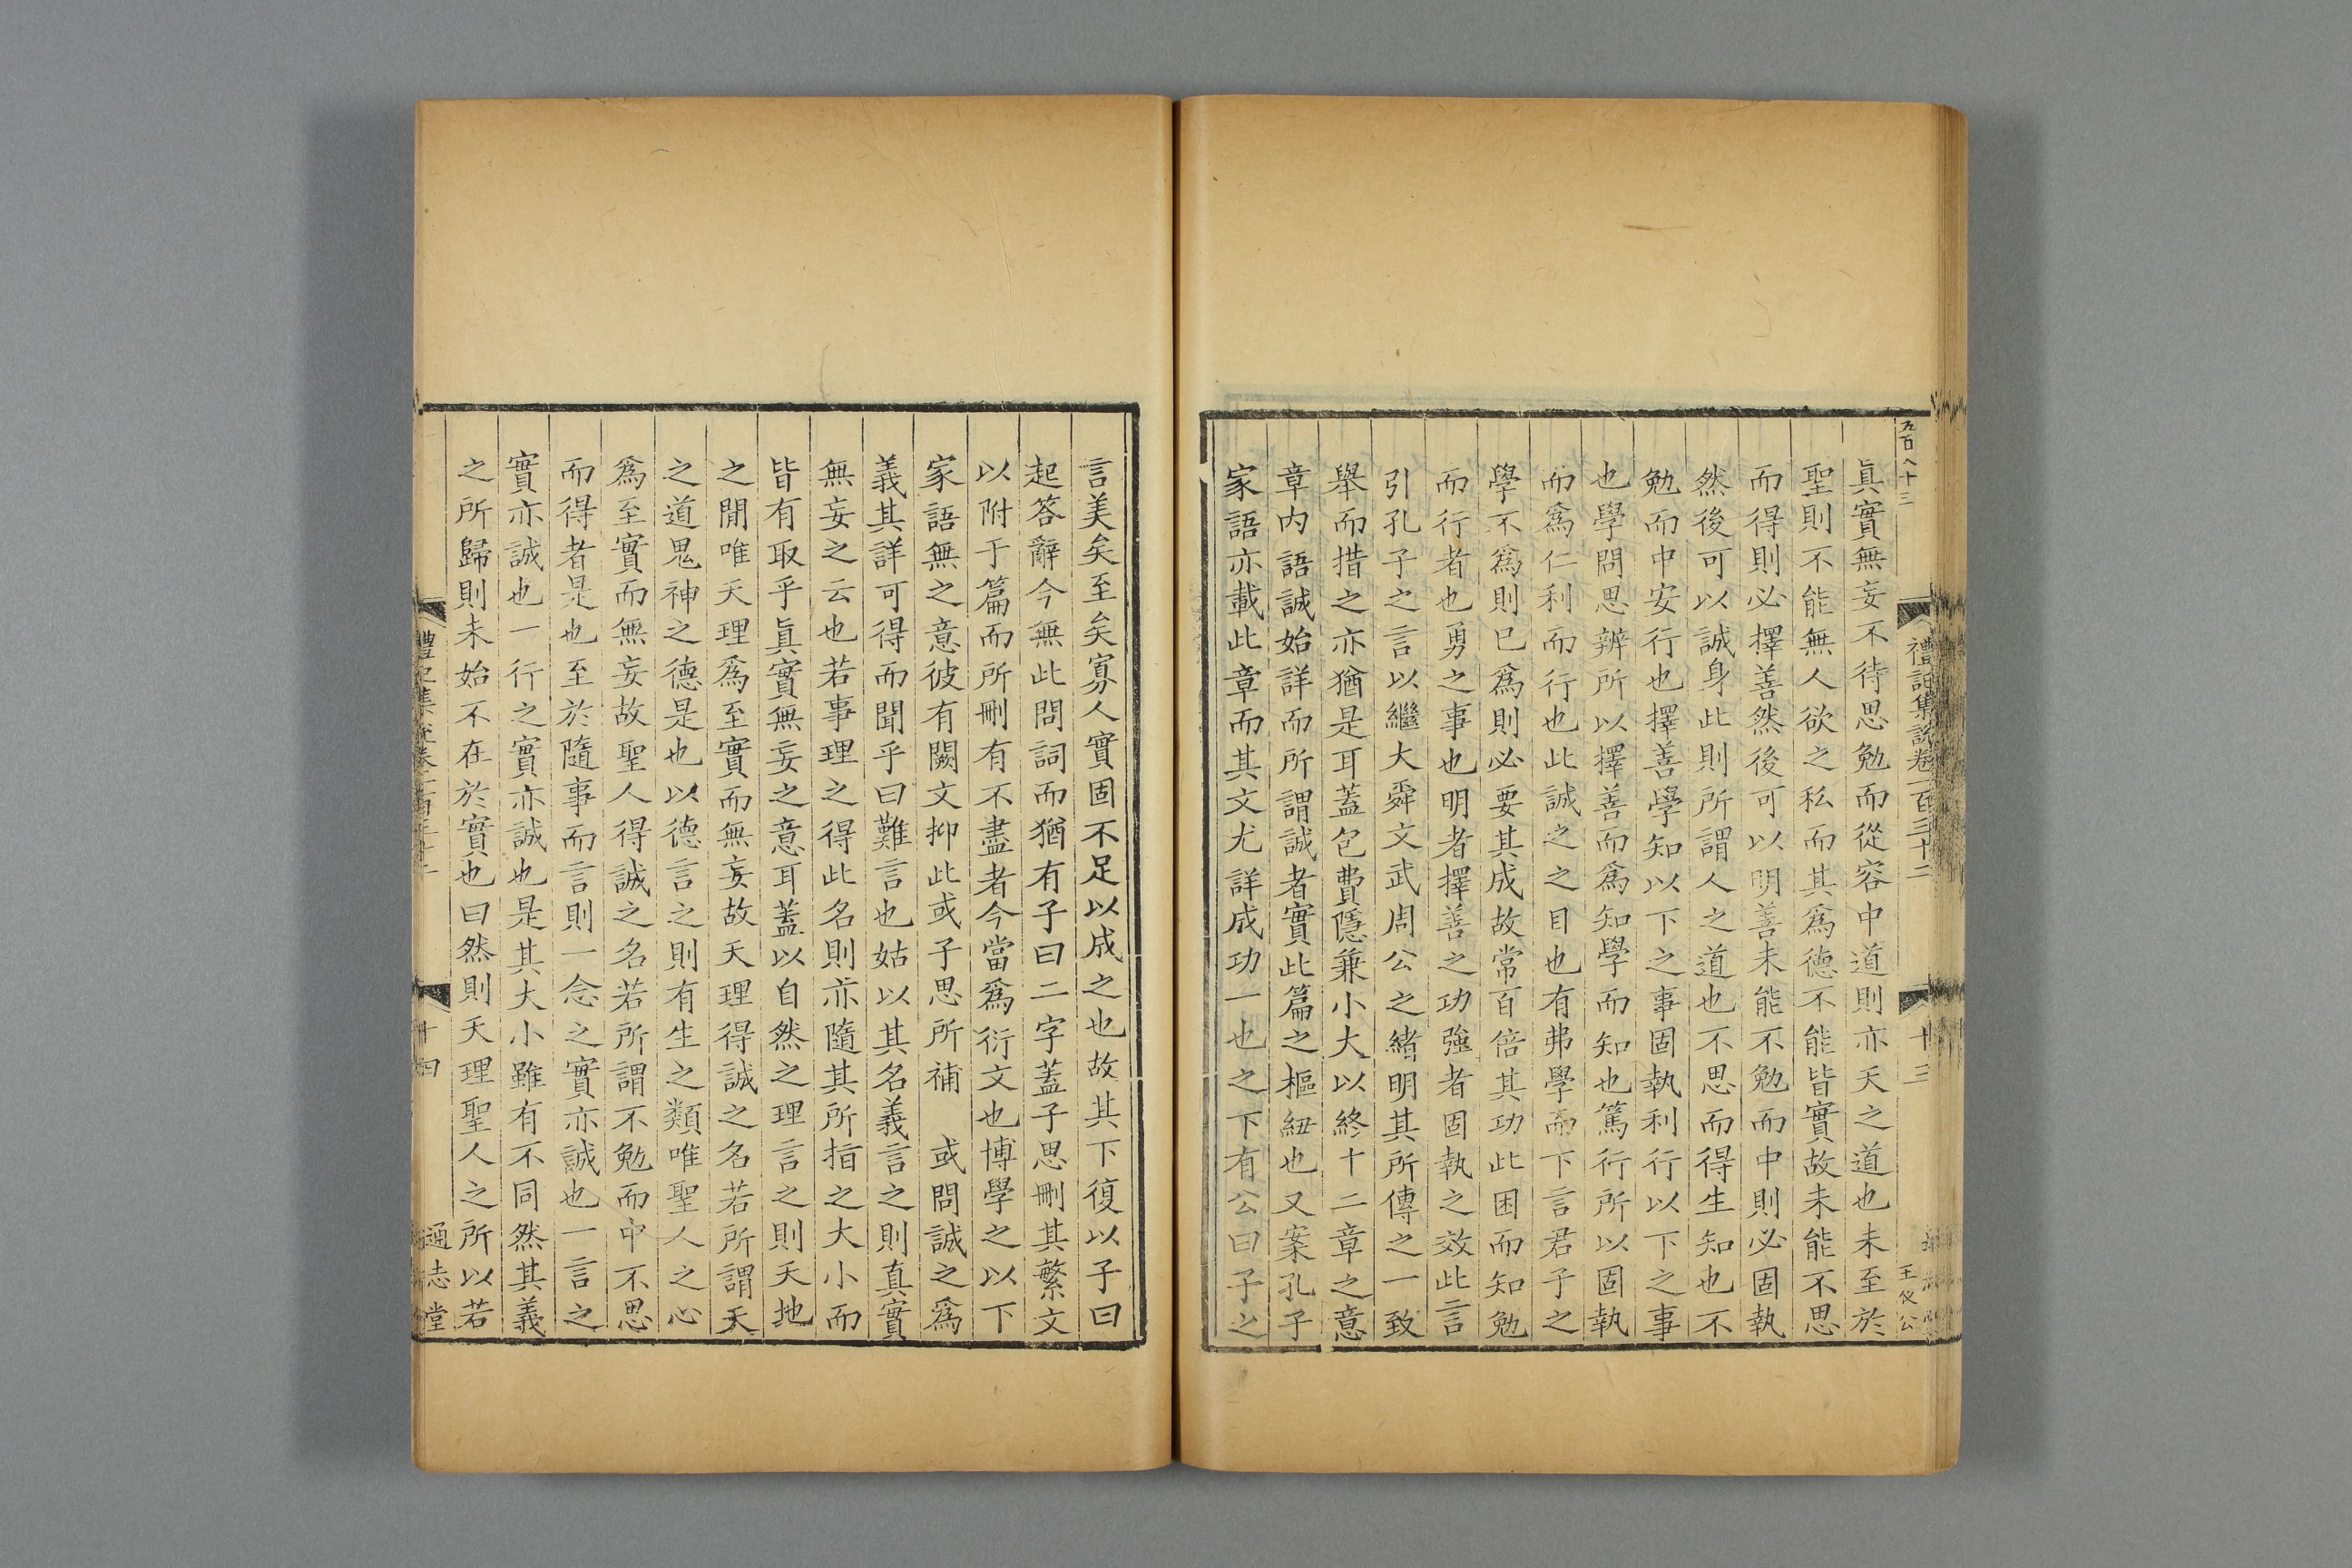 五百八十三
禮記集說卷一百三十二
十三
王公
眞實無妄不待思勉而從容中道則亦天之道也未至於
聖則不能無人欲之私而其爲德不能皆實故未能不思
而得則必擇善然後可以明善未能不勉而中則必固執
然後可以誠身此則所謂人之道也不思而得生知也不
勉而中安行也擇善學知以下之事固執利行以下之事
也學問思辨所以擇善而爲知學而知也篤行所以固執
而爲仁利而行也此誠之之目也有弗學而下言君子之
學不爲則已爲則必要其成故常百倍其功此困而知勉
而行者也勇之事也明者擇善之功強者固執之效此言
引孔子之言以繼大舜文武周公之緒明其所傳之一致
舉而措之亦猶是耳蓋包費隱兼小大以終十二章之意
章内語誠始詳而所謂誠者實此篇之樞紐也又案孔子
家語亦載此章而其文尤詳成功一也之下有公曰子之
言美矣至矣寡人實固不足以成之也故其下復以子曰
起答辭今無此問詞而猶有子曰二字蓋子思刪其繁文
以附于篇而所刪有不盡者今當爲衍文也博學之以下
家語無之意彼有闕文抑此或子思所補　或問誠之爲
義其詳可得而聞乎曰難言也姑以其名義言之則真實
無妄之云也若事理之得此名則亦隨其所指之大小而
皆有取乎眞實無妄之意耳蓋以自然之理言之則天地
之閒唯天理爲至實而無妄故天理得誠之名若所謂天
之道鬼神之德是也以德言之則有生之類唯聖人之心
爲至實而無妄故聖人得誠之名若所謂不勉而中不思
而得者是也至於隨事而言則一念之實亦誠也一言之
實亦誠也一行之實亦誠也是其大小雖有不同然其義
之所歸則未始不在於實也曰然則天理聖人之所以若
禮記集說卷一百三十二
十四
通志堂